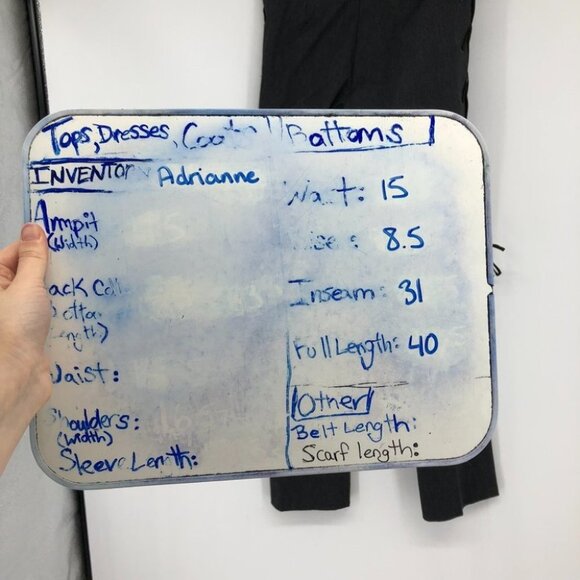 Tops, Dresses, Coats
INVENTORY Adrianne
Armpit
(width)
Back
Length)
Waist:
Shoulders:
(width)
Sleeve Lenth:
Bottoms
Waist: 15
Rise: 8.5
Inseam: 31
Full Length: 40
Other
Belt Length:
Scarf length: